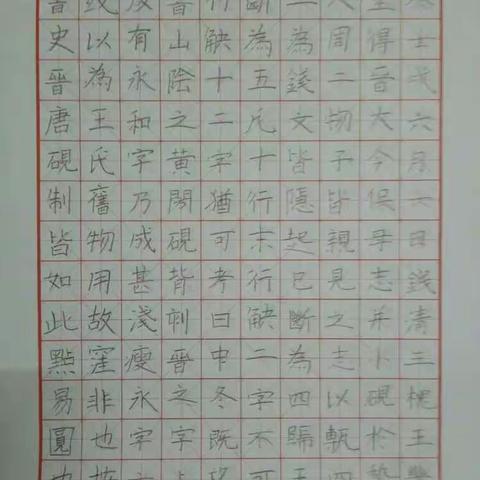 壬戌六月六日錢清三槐王
得晉大令保母志并小硯於
人周二物予皆親見之志以甎四
三為錢文皆隱起已斷為四歸王
斷為五凡十行末行缺二字不可
行缺十二字猶可考曰中冬既
晉山陰之黃閍硯背刻晉之字
有永和字乃成甚淺瘦永字
以為王氏舊物用故窪非也
史晉唐硯制皆如此點易圓